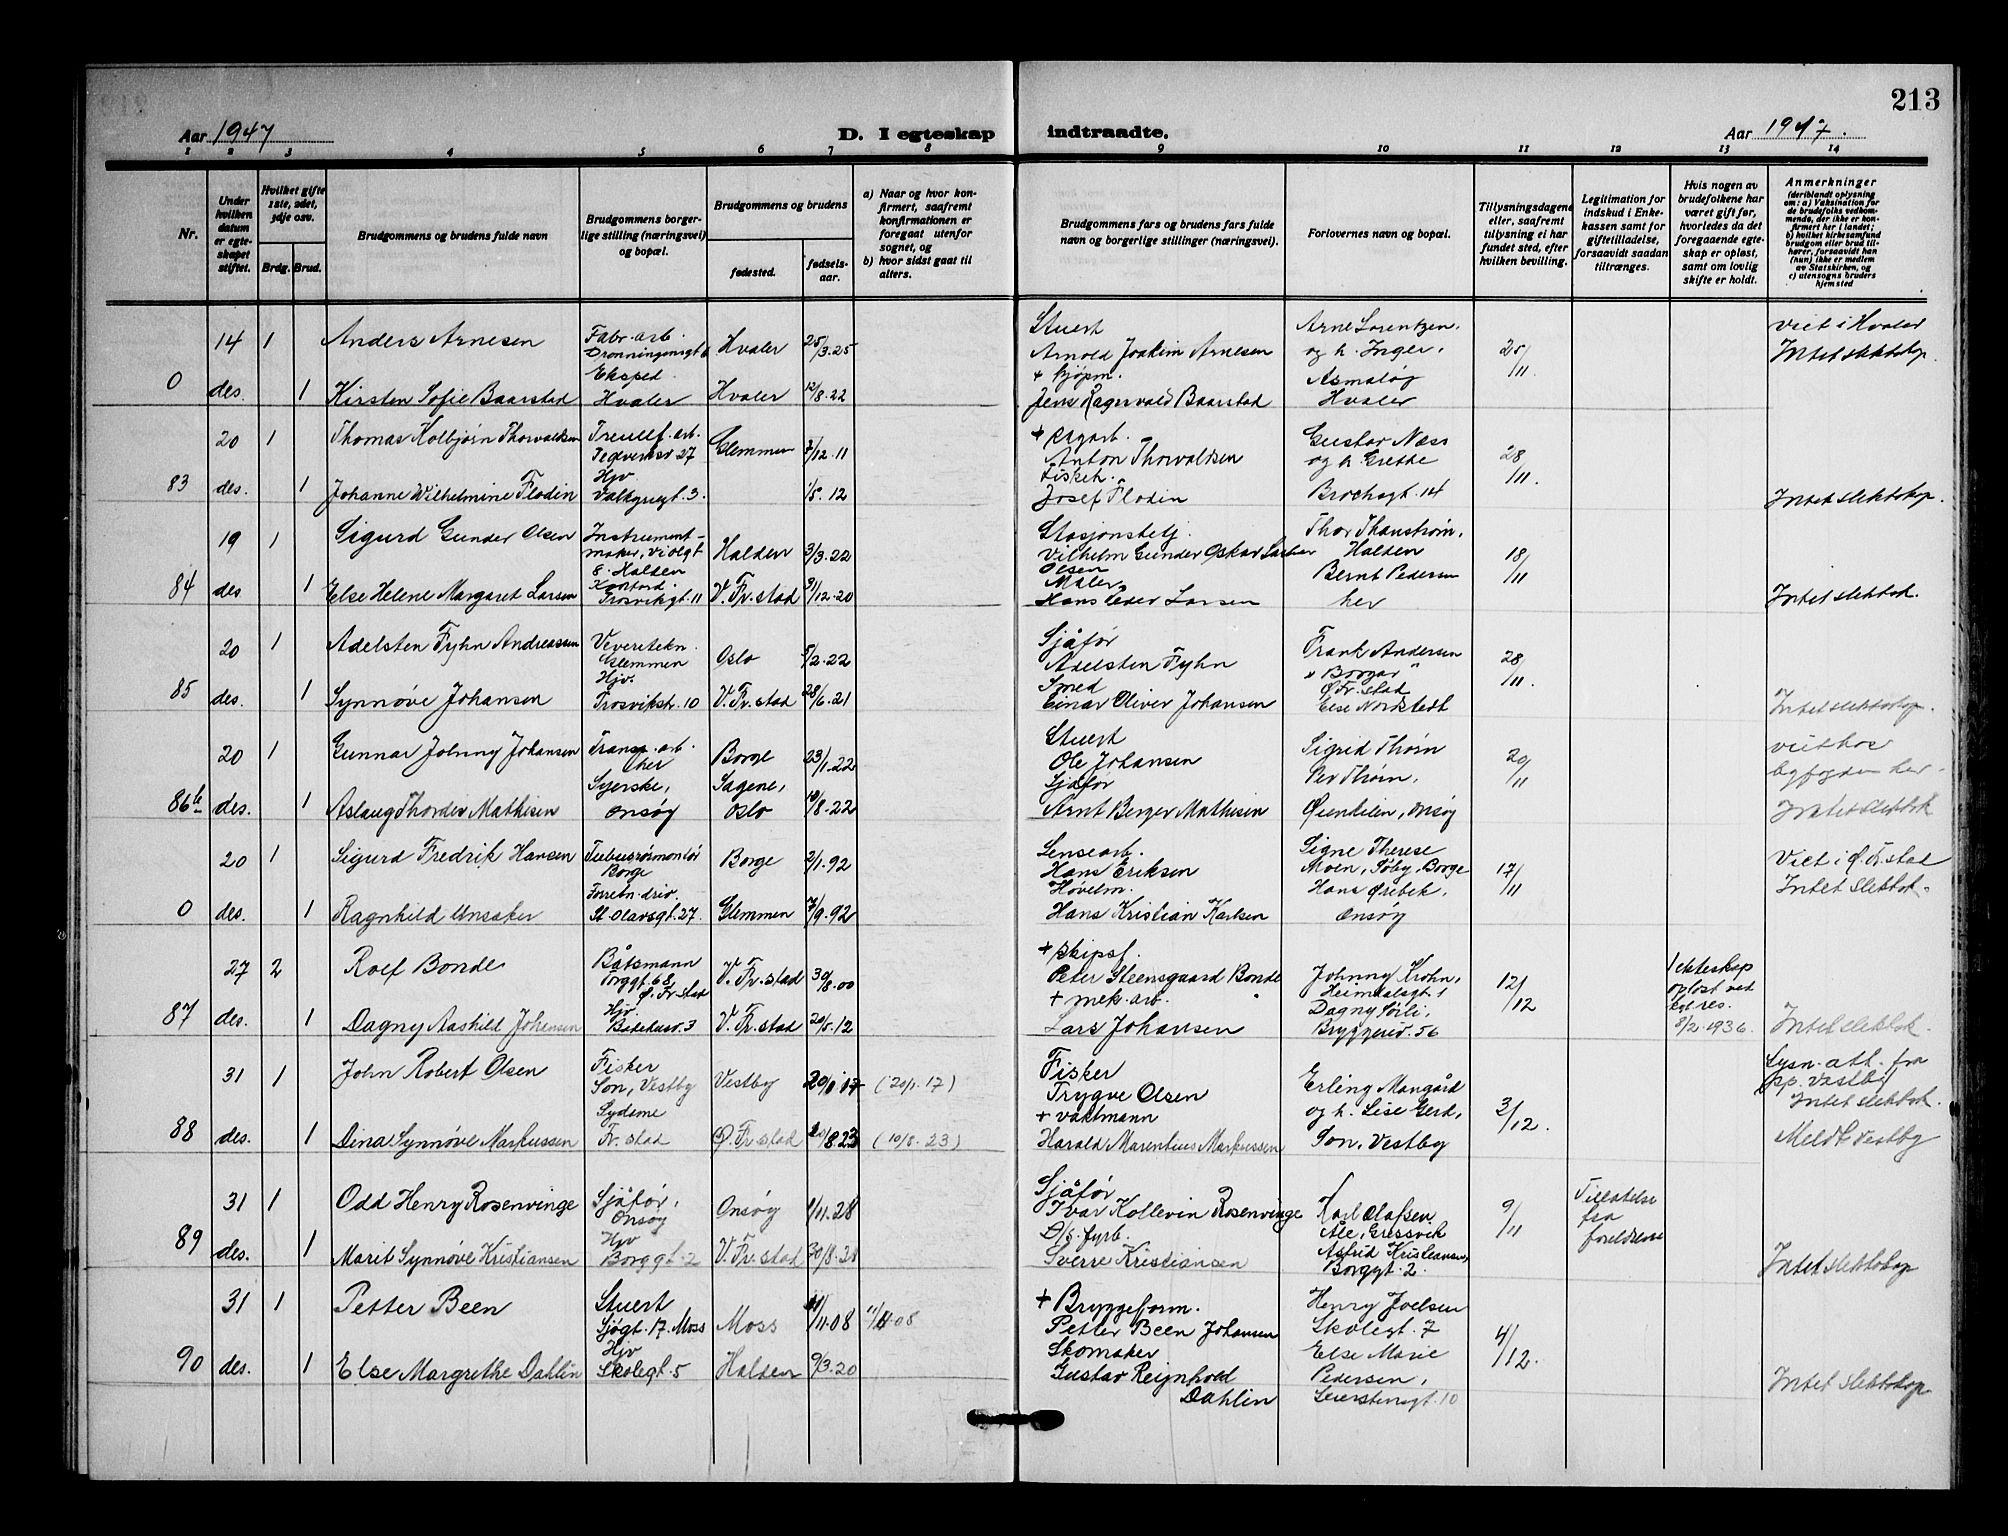 213
Aar 1947
D. I egteskap indtraadte.
Aar 1947.
1 2 3 4 5 6 7 8 9 10 11 12 13 14
Nr.
Under hvilken datum er egteskapet stiftet.
Hvilket gifte 1ste, 2det, 3dje osv.
Brdg. Brud.
Brudgommens og brudens fulde navn
Brudgommens borgerlige stilling (næringsvei) og bopæl.
Brudgommens og brudens
fødested.
fødselsaar.
a) Naar og hvor konfirmert, saafremt konfirmationen er foregaat utenfor sognet, og
b) hvor sidst gaat til alters.
Brudgommens fars og brudens fars fulde navn og borgerlige stillinger (næringsvei).
Forlovernes navn og bopæl.
Tillysningsdagene eller, saafremt tillysning ei har fundet sted, efter hvilken bevilling.
Legitimation for indskud i Enkekassen samt for giftetilladelse, forsaavidt saadan tiltrænges.
Hvis nogen av brudefolkene har været gift før, hvorledes da det foregaaende egteskap er opløst, samt om lovlig skifte er holdt.
Anmerkninger
(deriblandt oplysning om: a) Vaksination for de brudefolks vedkommende, der ikke er konfirmert her i landet; b) hvilket kirkesamfund brudgom eller brud tilhører, forsaavidt han (hun) ikke er medlem av Statskirken, og c) utensogns bruders hjemsted
14 1 Anders Arnesen Fabr.arb. Dronningensgt 6 Hvaler 25/3.25 Stuert Arnold Joakim Arnesen Arne Lorentzen, og h. Inger, 25/11. Viet i Hvaler Intet slektskap.
0 des. 1 Kirsten Sofie Baarstad Eksped. Hvaler Hvaler 12/8.22 + kjøpm. Jens Ragnvald Baarstad Asmaløy Hvaler
20 1 Thomas Kolbjørn Thorvaldsen Treullf.arb. 27 Glemmen 7/12.11 Anton Thorvaldsen Gustav Næss og h. Grethe 28/11.
83 des. 1 Johanne Wilhelmine Flodin Hjv Valkyrjegt.3. 1/5.12 Fisket. Josef Flodin Brochsgt.14 Intet slektskap.
19 1 Sigurd Gunder Olsen Instrumentmaker, Violgt 8. Halden Halden 3/3.22 Stasjonsbetj. Vilhelm Gunder Oskar Olsen Halden 18/11
84 des 1 Else Helene Margaret Larsen Kontord. Trosvikgt.11 V. Fr.stad 31/12.20 Maler Hans Peder Larsen Bernt Pedersen her Intet slektsk.
20 1 Adelsten Fyhn Andreassen Veveritekn. Glemmen Oslo 5/2.22 Sjåfør Adelsten Fyhn Frank Andersen Borgar 28/11.
85 des. 1 Synnøve Johansen Hjv. Trosvikstr.10 V. Fr.stad 28/6.21 Smed Einar Oliver Johansen Ø Fr.stad Else Nordstedt Intet slektskap.
20 1 Gunnar Johnny Johansen Transp.arb. her Borge 23/1.22 Stuert Ole Johansen Sigrid Thørn Per Thørn, 20/11 viet hos byfogden her.
86 b des. 1 Aslaug Thordis Mathisen Syerske, Onsøy Sagene, Oslo 10/8.22 Sjåfør Arnt Berger Mathisen Øiendelen, Onsøy Intet slektsk
20 1 Sigurd Fredrik Hansen Borge Borge 2/1.92 Lensearb. Hans Eriksen Signe Therese Moen, Torby, Borge 17/11 Viet i Ø. Fr.stad Intet slektsk.
0 des. 1 Ragnhild Unsaker Forretn.driv. St. Olavsgt.27. Glemmen 7/9.92 Høvelm. Hans Kristian Karlsen Hans Ørebek, Onsøy
27 2 Rolf Bonde Båtsmann Torggt 68 Ø. Fr.stad V. Fr.stad 30/8.00 + skipsf. Peter Steensgaard Bonde Johnny Krohn, Heimdalsgt 1 12/12 1 ekteskap opløst ved kgl.res. 8/2.1936.
87 des. 1 Dagny Aashild Johansen Hjv. Båtehusv.3 V. Fr.stad 20/5.12 + mek.arb. Lars Johansen Dagny Sørli, Bryggeriv.56 Intet slektsk.
31 1 John Robert Olsen Fisker Son, Vestby Vestby 20/1.17 (20/1.17) Fisker Trygve Olsen Erling Mangård og h. Lise Gerk, 3/12. Lysn.att. fra spp. Vestby Intet slektsk.
88 des. 1 Dina Synnøve Markussen Sydame Fr.stad Ø Fr.stad 10/8.23 (10/8.23) + vaktmann Harald Marentius Markussen Son, Vestby Meldt Vestby
31 1 Odd Henry Rosenvinge Sjåfør, Onsøy Onsøy 4/11.28 Sjåfør Ivar Kollevin Rosenvinge Karl Olafsen Åle, Gressvik 9/11 Tillatelse fra foreldrene
89 des. 1 Marit Synnøve Kristiansen Hjv Borggt.2 V. Fr.stad 30/8.28 D/s. fyrb. Sverre Kristiansen Astrid Kristiansen, Borggt.2. Intet slektskap
31 1 Petter Been Stuert Sjøgt.17. Moss Moss 11/11.08 11/11.08 + Bryggeform. Petter Been Johansen Henry Joelsen Skolegt.7 4/12.
90 des. 1 Else Margrethe Dahlin Hjv Skolegt.5 Halden 9/3.20 Skomaker Gustav Reignhold Dahlin Else Marie Pedersen, Leierstensgt.10 Intet slektskap